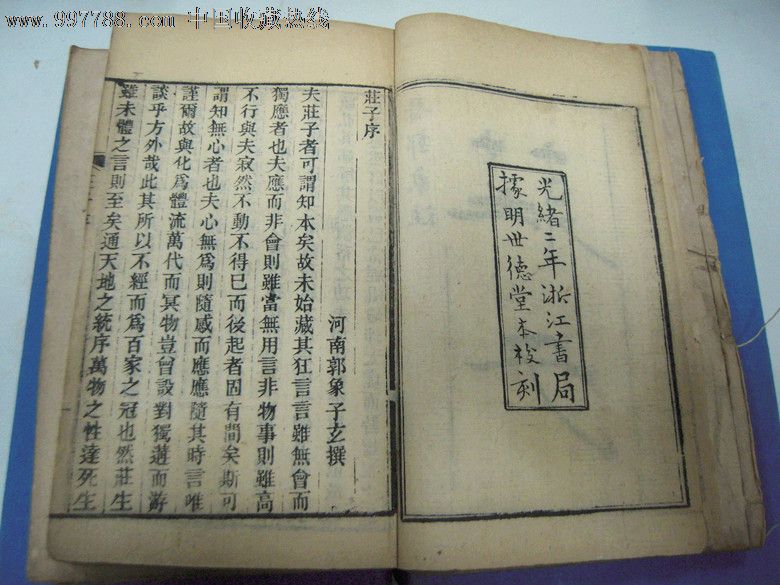 www.997788.com 中国收藏热线
光緒二年浙江書局
據明世德堂本校刻
莊子序
河南郭象子玄撰
夫莊子者可謂知本矣故未始藏其狂言言雖無會而
獨應者也夫應而非會則雖當無用言非物事則雖高
不行與夫寂然不動不得已而後起者固有間矣斯可
謂知無心者也夫心無爲則隨感而應應隨其時言唯
謹爾故與化爲體流萬代而冥物豈曾設對獨遘而游
談乎方外哉此其所以不經而爲百家之冠也然莊生
雖未體之言則至矣通天地之統序萬物之性達死生